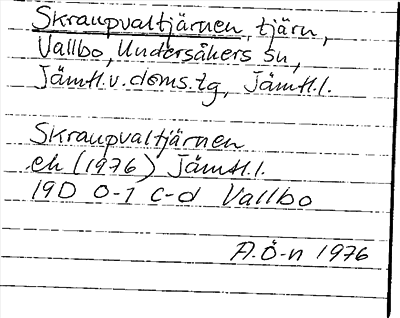 Skraupvaltjärnen, tjärn,
Vallbo, Undersåkers sn,
Jämtl.v.doms.tg, Jämtl.l.
Skraupvaltjärnen
ek (1976) Jämtl.l.
19D 0-1 c-d Vallbo
A.Ö-n 1976